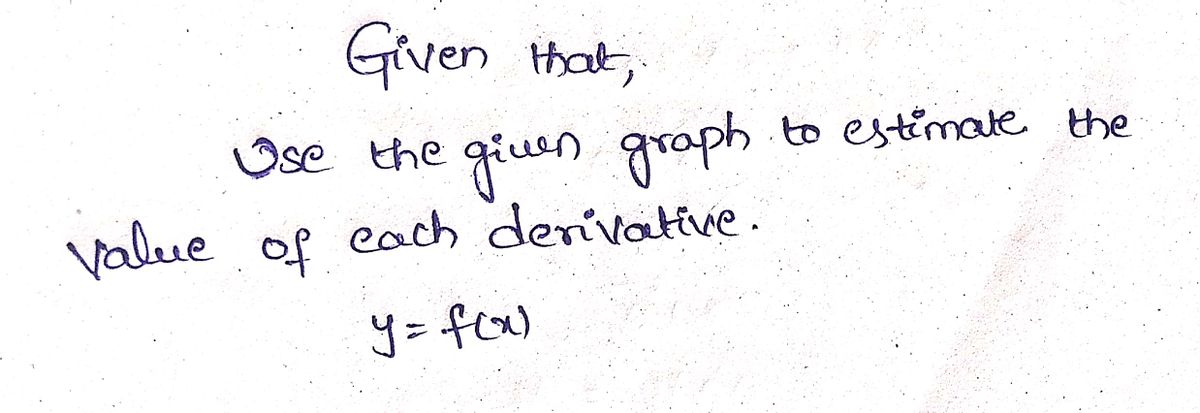 Given that,
Use the given graph to estimate the
value of each derivative.
y = f(x)